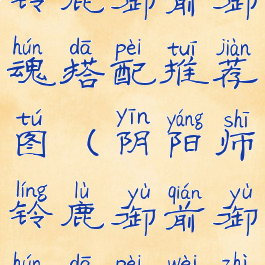 铃鹿御前御
hún dā pèi tuī jiàn
魂搭配推荐
tú yīn yáng shī
图(阴阳师
líng lù yù qián yù
铃鹿御前御
hún dā pèi wèi zhì